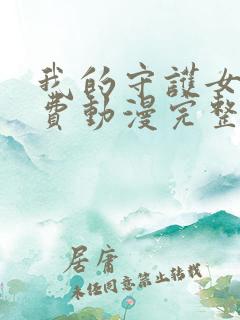 我的守護女
費動漫完整
居庸
未经同意禁止转载